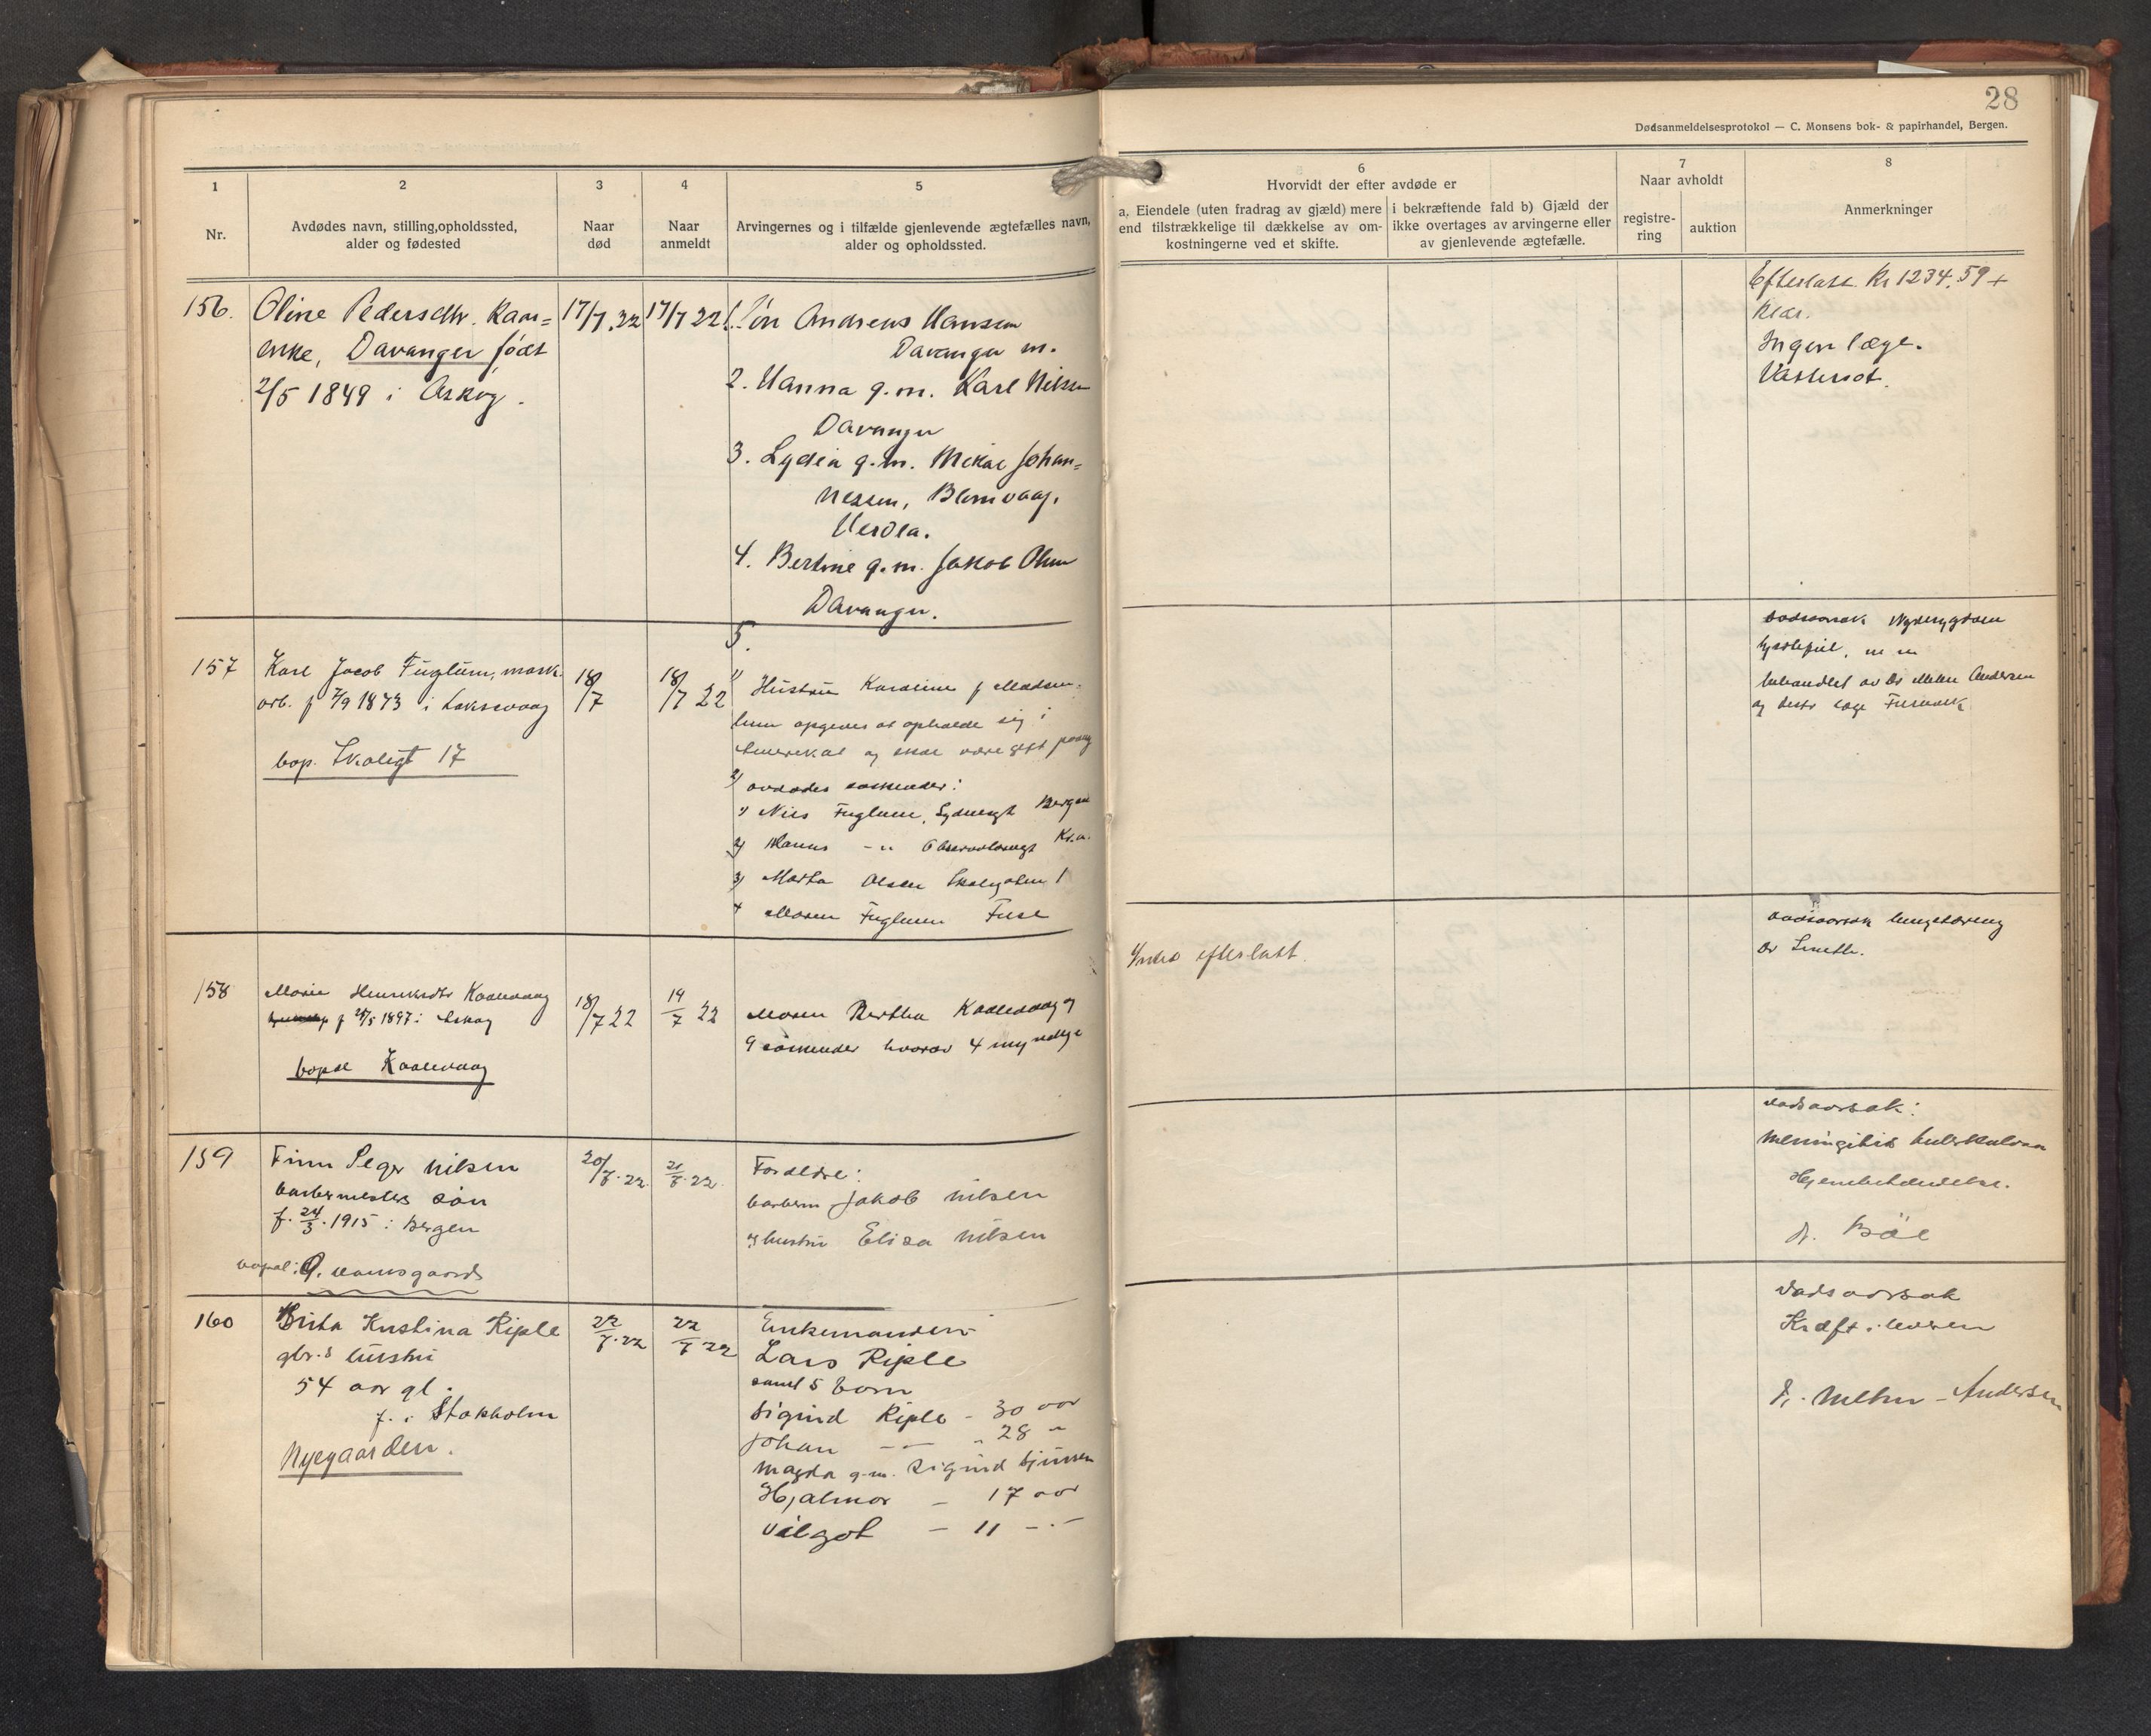 28
Dødsanmeldelsesprotokol — C. Monsens bok- & papirhandel, Bergen.
1
Nr.
2
Avdødes navn, stilling, opholdssted,
alder og fødested
3
Naar
død
4
Naar
anmeldt
5
Arvingernes og i tilfælde gjenlevende ægtefælles navn,
alder og opholdssted.
6
Hvorvidt der efter avdøde er
a. Eiendele (uten fradrag av gjæld) mere
end tilstrækkelige til dækkelse av om-
kostningerne ved et skifte.
i bekræftende fald b) Gjæld der
ikke overtages av arvingerne eller
av gjenlevende ægtefælle.
7
Naar avholdt
registre-
ring
auktion
8
Anmerkninger
156.
Oline Pedersdtr. Kaar=
enke, Davanger født
2/5 1849 i Askøy.
17/7.22
17/7 22
1. Søn Andreas Hansen
Davanger m.
2. Hanna g.m. Karl Nilsen
Davanger
3. Lydia g.m. Mikal Johan=
nessen, Blomvaag,
Herdla.
4. Bertine g.m. Jakob Olsen
Davanger.
5.
Efterlatt Kr 1234.59 +
klær.
Ingen læge.
Vattersot.
157
Karl Jacob Fuglum, mask.
arb. f 2/9 1873 i Laksevaag
bop. Skolegt 17
18/7
18/7 22
1) Hustru Karoline f Madsen.
hun opgives at opholde sig i
Amerika og skal være gift paany
2) avdødes søskender:
1) Nils Fuglum, Sydnesgt Bergen
2) Hans -"- Observatoriegt Kr.a.
3) Marta Olsen Skolegaten 1
4 Maren Fuglum Fuse
dødsaarsak Nyresygdom
hjertefeil, m m
behandlet av Dr Meltzer Andersen
og distr læge
158
Marie Henriksdtr Kaalevaag
f 25/5 1897 i Askøy
bopæl Kaalevaag
18/7 22
19/7 22
Moren Bertha Kaalevaag og
9 søskender hvorav 4 myndige
Intet efterlatt.
dødsaarsak lungetæring
Dr Smith.
159
Finn Peger Nilsen
barbermesters søn
f. 24/3.1915 i Bergen
bopæl: O. Damsgaards
20/7.22
21/7.22
Forældre:
barberm Jakob Nilsen
og hustru Elisa Nilsen
dødsaarsak:
meningitis tuberkulosa
Hjemmebehandlelse.
dr. Bøe
160
Brita Kristina Riple
gbr.s hustru
54 aar gl.
f. i Stokholm
Nyegaarden.
22/7.22
22/7 22
Enkemanden
Lars Riple
samt 5 born
Sigurd Riple - 30 aar
Johan -"- - 28 "
Magda g.m. Sigurd
Hjalmar - 17 aar
Vilgot - 11 -"-
Dødsaarsak
Kræft i leveren
Dr. Meltzer-Andersen